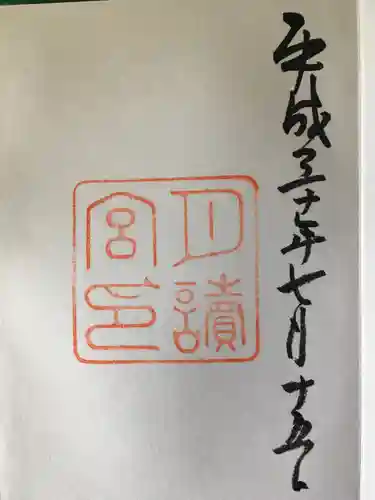 平成三十年七月十五日
月讀
宮印